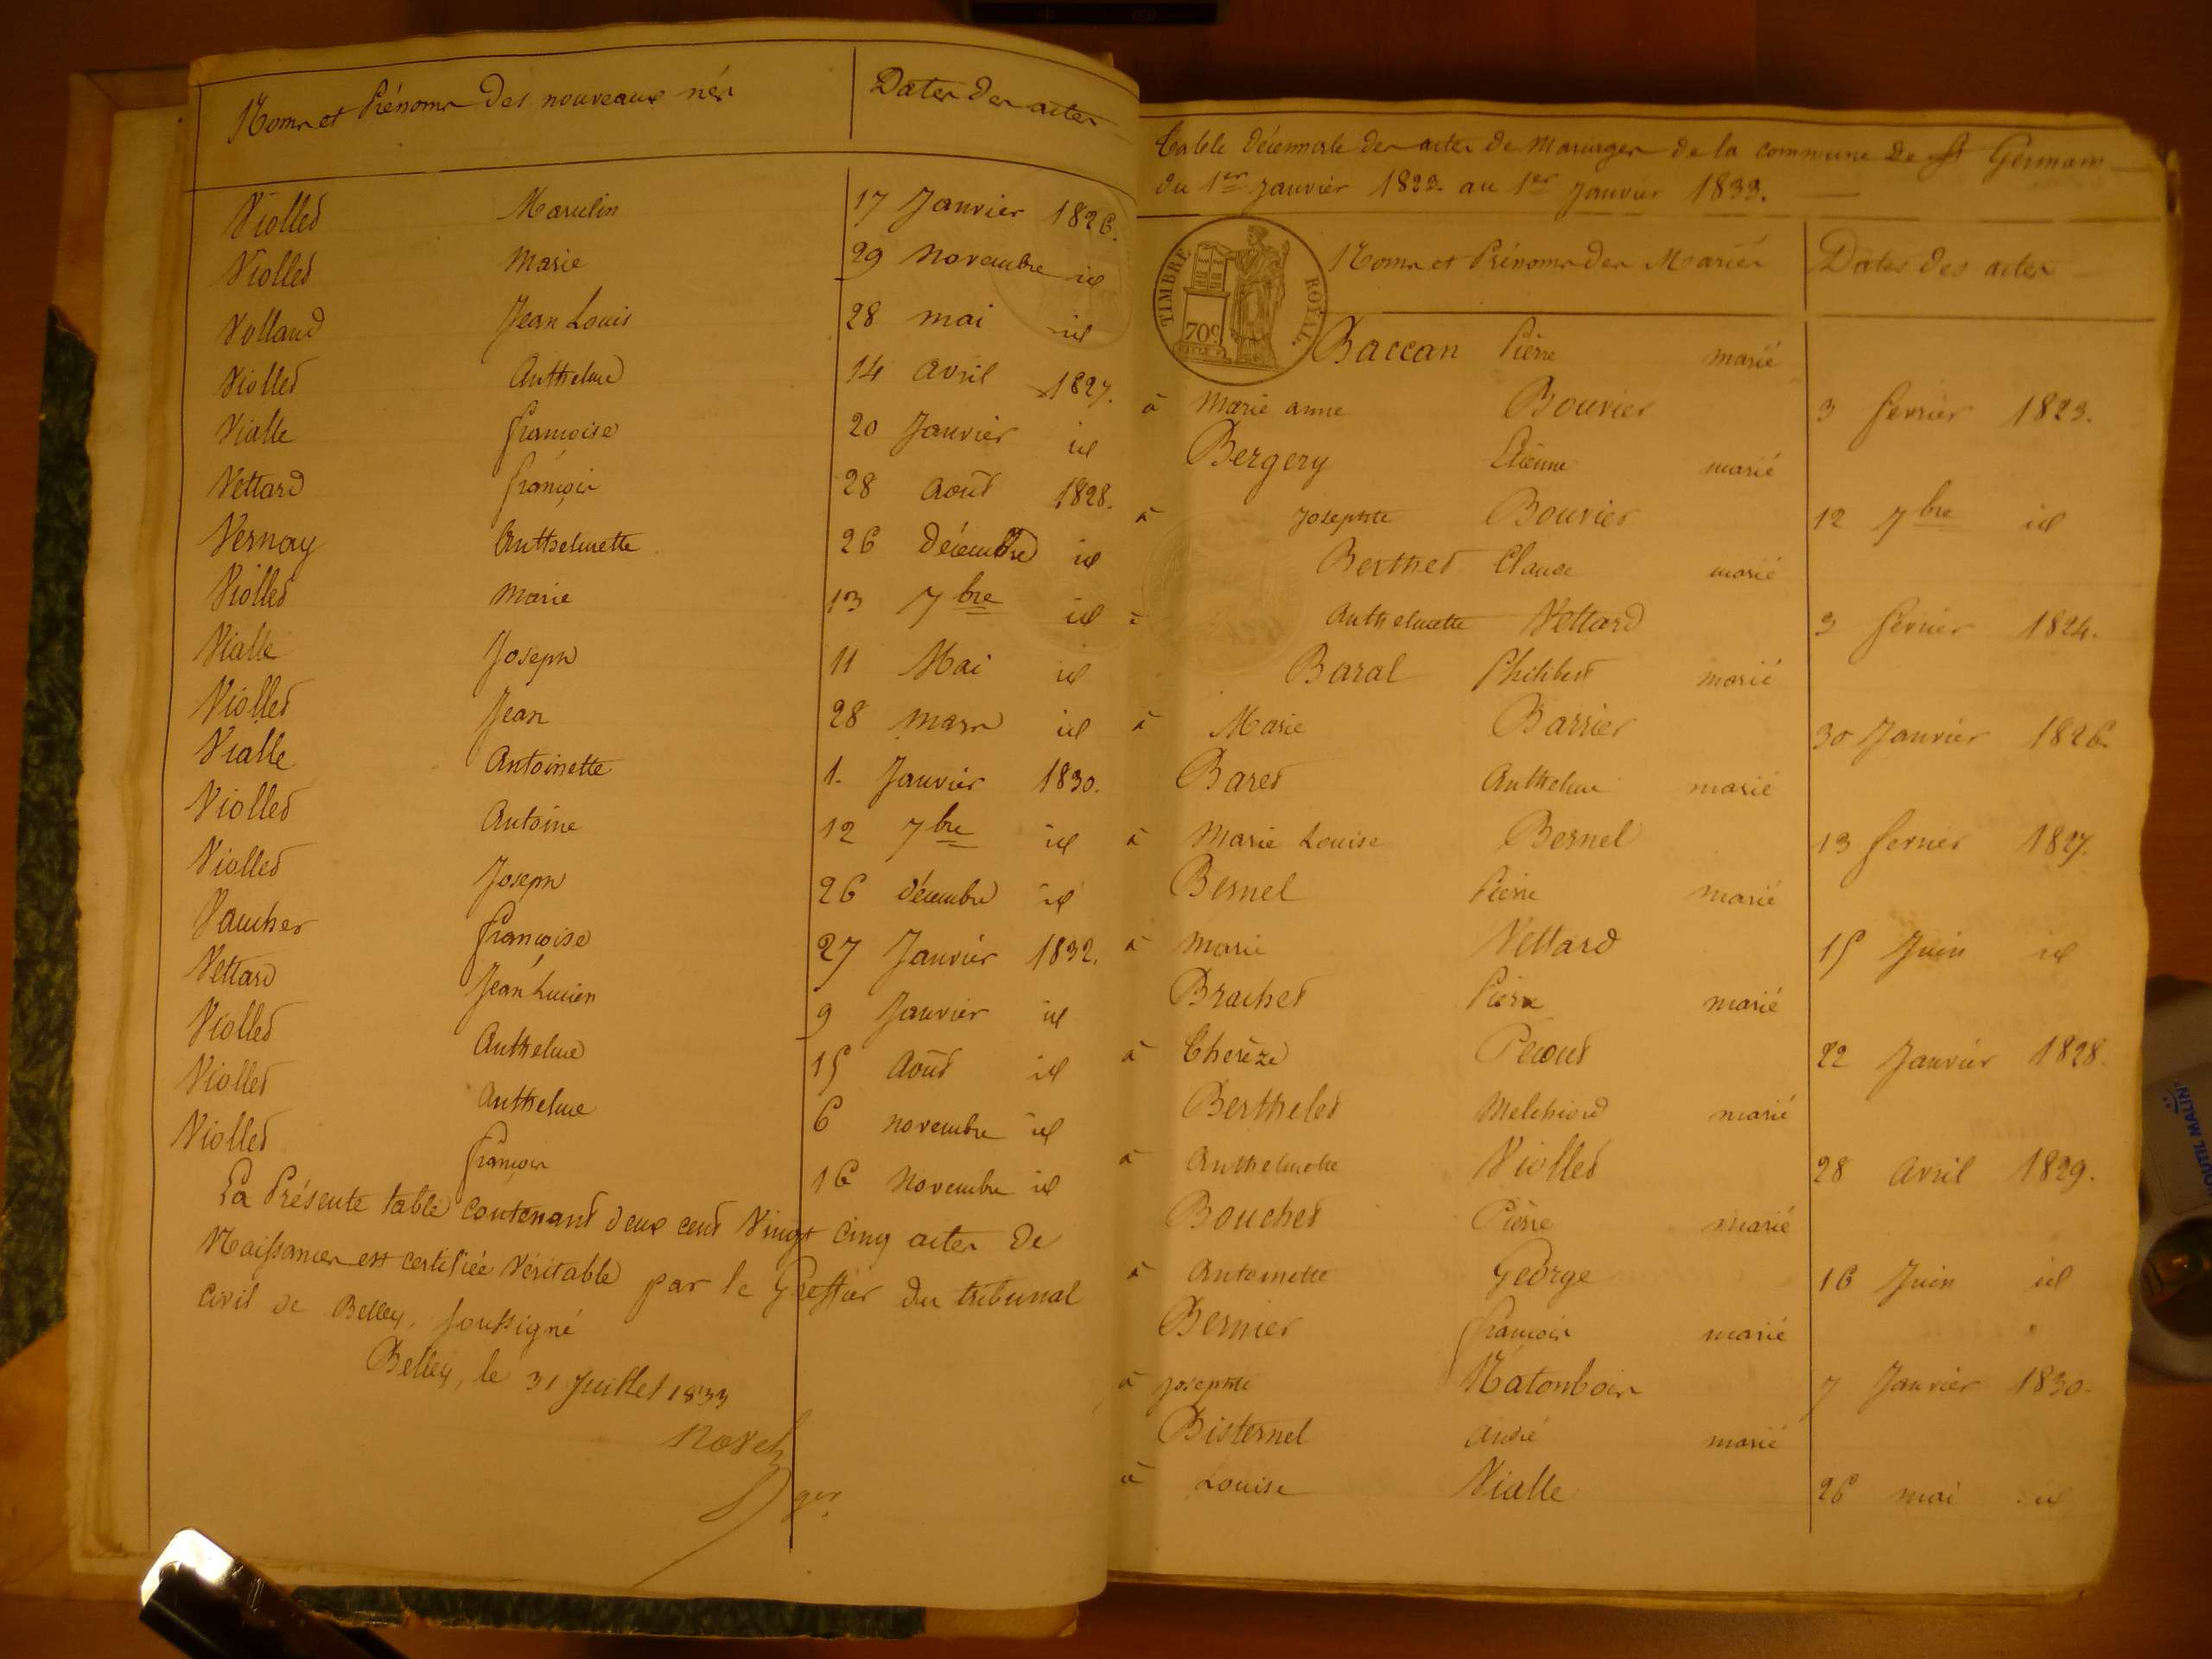 Noms et Prénoms des nouveaux nés Dates des actes
Viollet Marcelin 17 Janvier 1826.
Viollet Marie 29 Novembre id
Volland Jean Louis 28 mai id
Viollet Anthelme 14 avril 1827.
Vialle françoise 20 Janvier id
Vettard françois 28 août 1828.
Vernay Anthelmette 26 décembre id
Viollet Marie 13 7bre id
Vialle Joseph 11 Mai id
Viollet Jean 28 mars id
Vialle Antoinette 1. Janvier 1830.
Viollet Antoine 12 7bre id
Viollet Joseph 26 décembre id
Vaucher françoise 27 Janvier 1832.
Vettard Jean Lucien 9 Janvier id
Viollet Anthelme 15 Août id
Viollet Anthelme 6 novembre id
Viollet françois 16 Novembre id
La Présente table contenant deux cent Vingt cinq actes de
Naissances est certifiée Véritable par le Greffier du tribunal
civil de Belley, soussigné
Belley, le 31 Juillet 1833
ger.
Table décennale des actes de Mariages de la commune de St Germain
du 1er Janvier 1823. au 1er Janvier 1833.
TIMBRE ROYAL.
70c
Noms et Prénoms des Mariés Dates des actes
Baccan Pierre marié
à Marie anne Bouvier 3 fevrier 1823.
Bergery Etienne marié
à Josephte Bouvier 12 7bre id
Berthet Claude marié
à Anthelmette Vettard 3 fevrier 1824.
Baral Philibert marié
à Marie Barrier 30 Janvier 1826.
Baret Anthelme marié
à Marie Louise Bernel 13 fevrier 1827.
Bernel Pierre marié
à Marie Vettard 15 Juin id
Brachet Pierre marié
à Therèze Pecoud 22 Janvier 1828.
Berthelet Melchiord marié
à Anthelmette Viollet 28 Avril 1829.
Bouchet Pierre marié
à Antoinette George 16 Juin id
Bernier françois marié
à Josephte Natonbois 7 Janvier 1830.
Bisternel André marié
à Louise Vialle 26 mai id
OUTIL MALIN